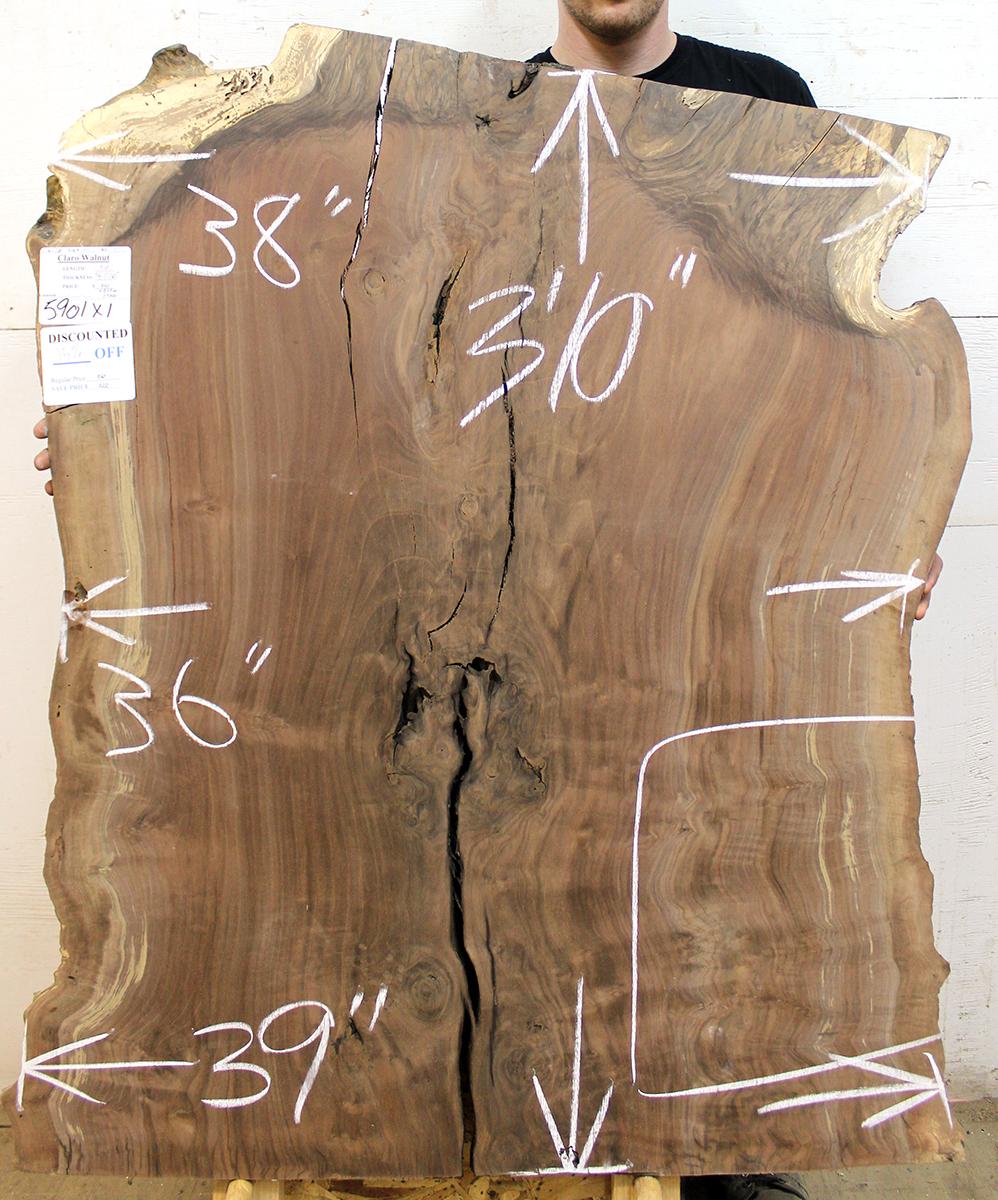 38"
3'10"
Claro Walnut
LENGTH:
THICKNESS:
PRICE:
5901X1
DISCOUNTED
OFF
Regular Price
SALE PRICE
36"
39"